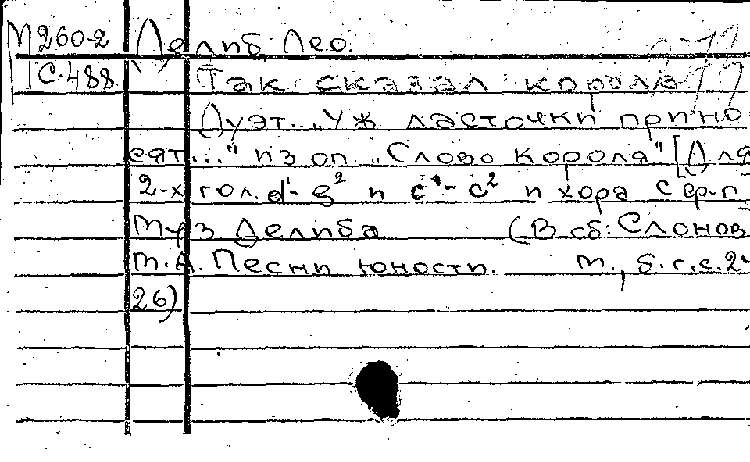 М260-2 Делиб Лео.
С-488 Так сказал король
Дуэт. „Уж ласточки прино
сят..." из оп. „Слово короля" [Для
2-х гол. d¹-g² и c¹-c² и хора с ср-п
Муз Делиба (В сб: Слонов
М.А. Песни юности. М., б.г. с.24
26)